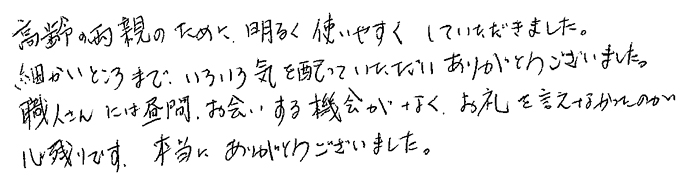 高齢の両親のために、明るく使いやすくしていただきました。
細かいところまで、いろいろ気を配っていただいありがとうございました。
職人さんには昼間、お会いする機会がなく、お礼を言えなかったのが
心残りです。本当にありがとうございました。